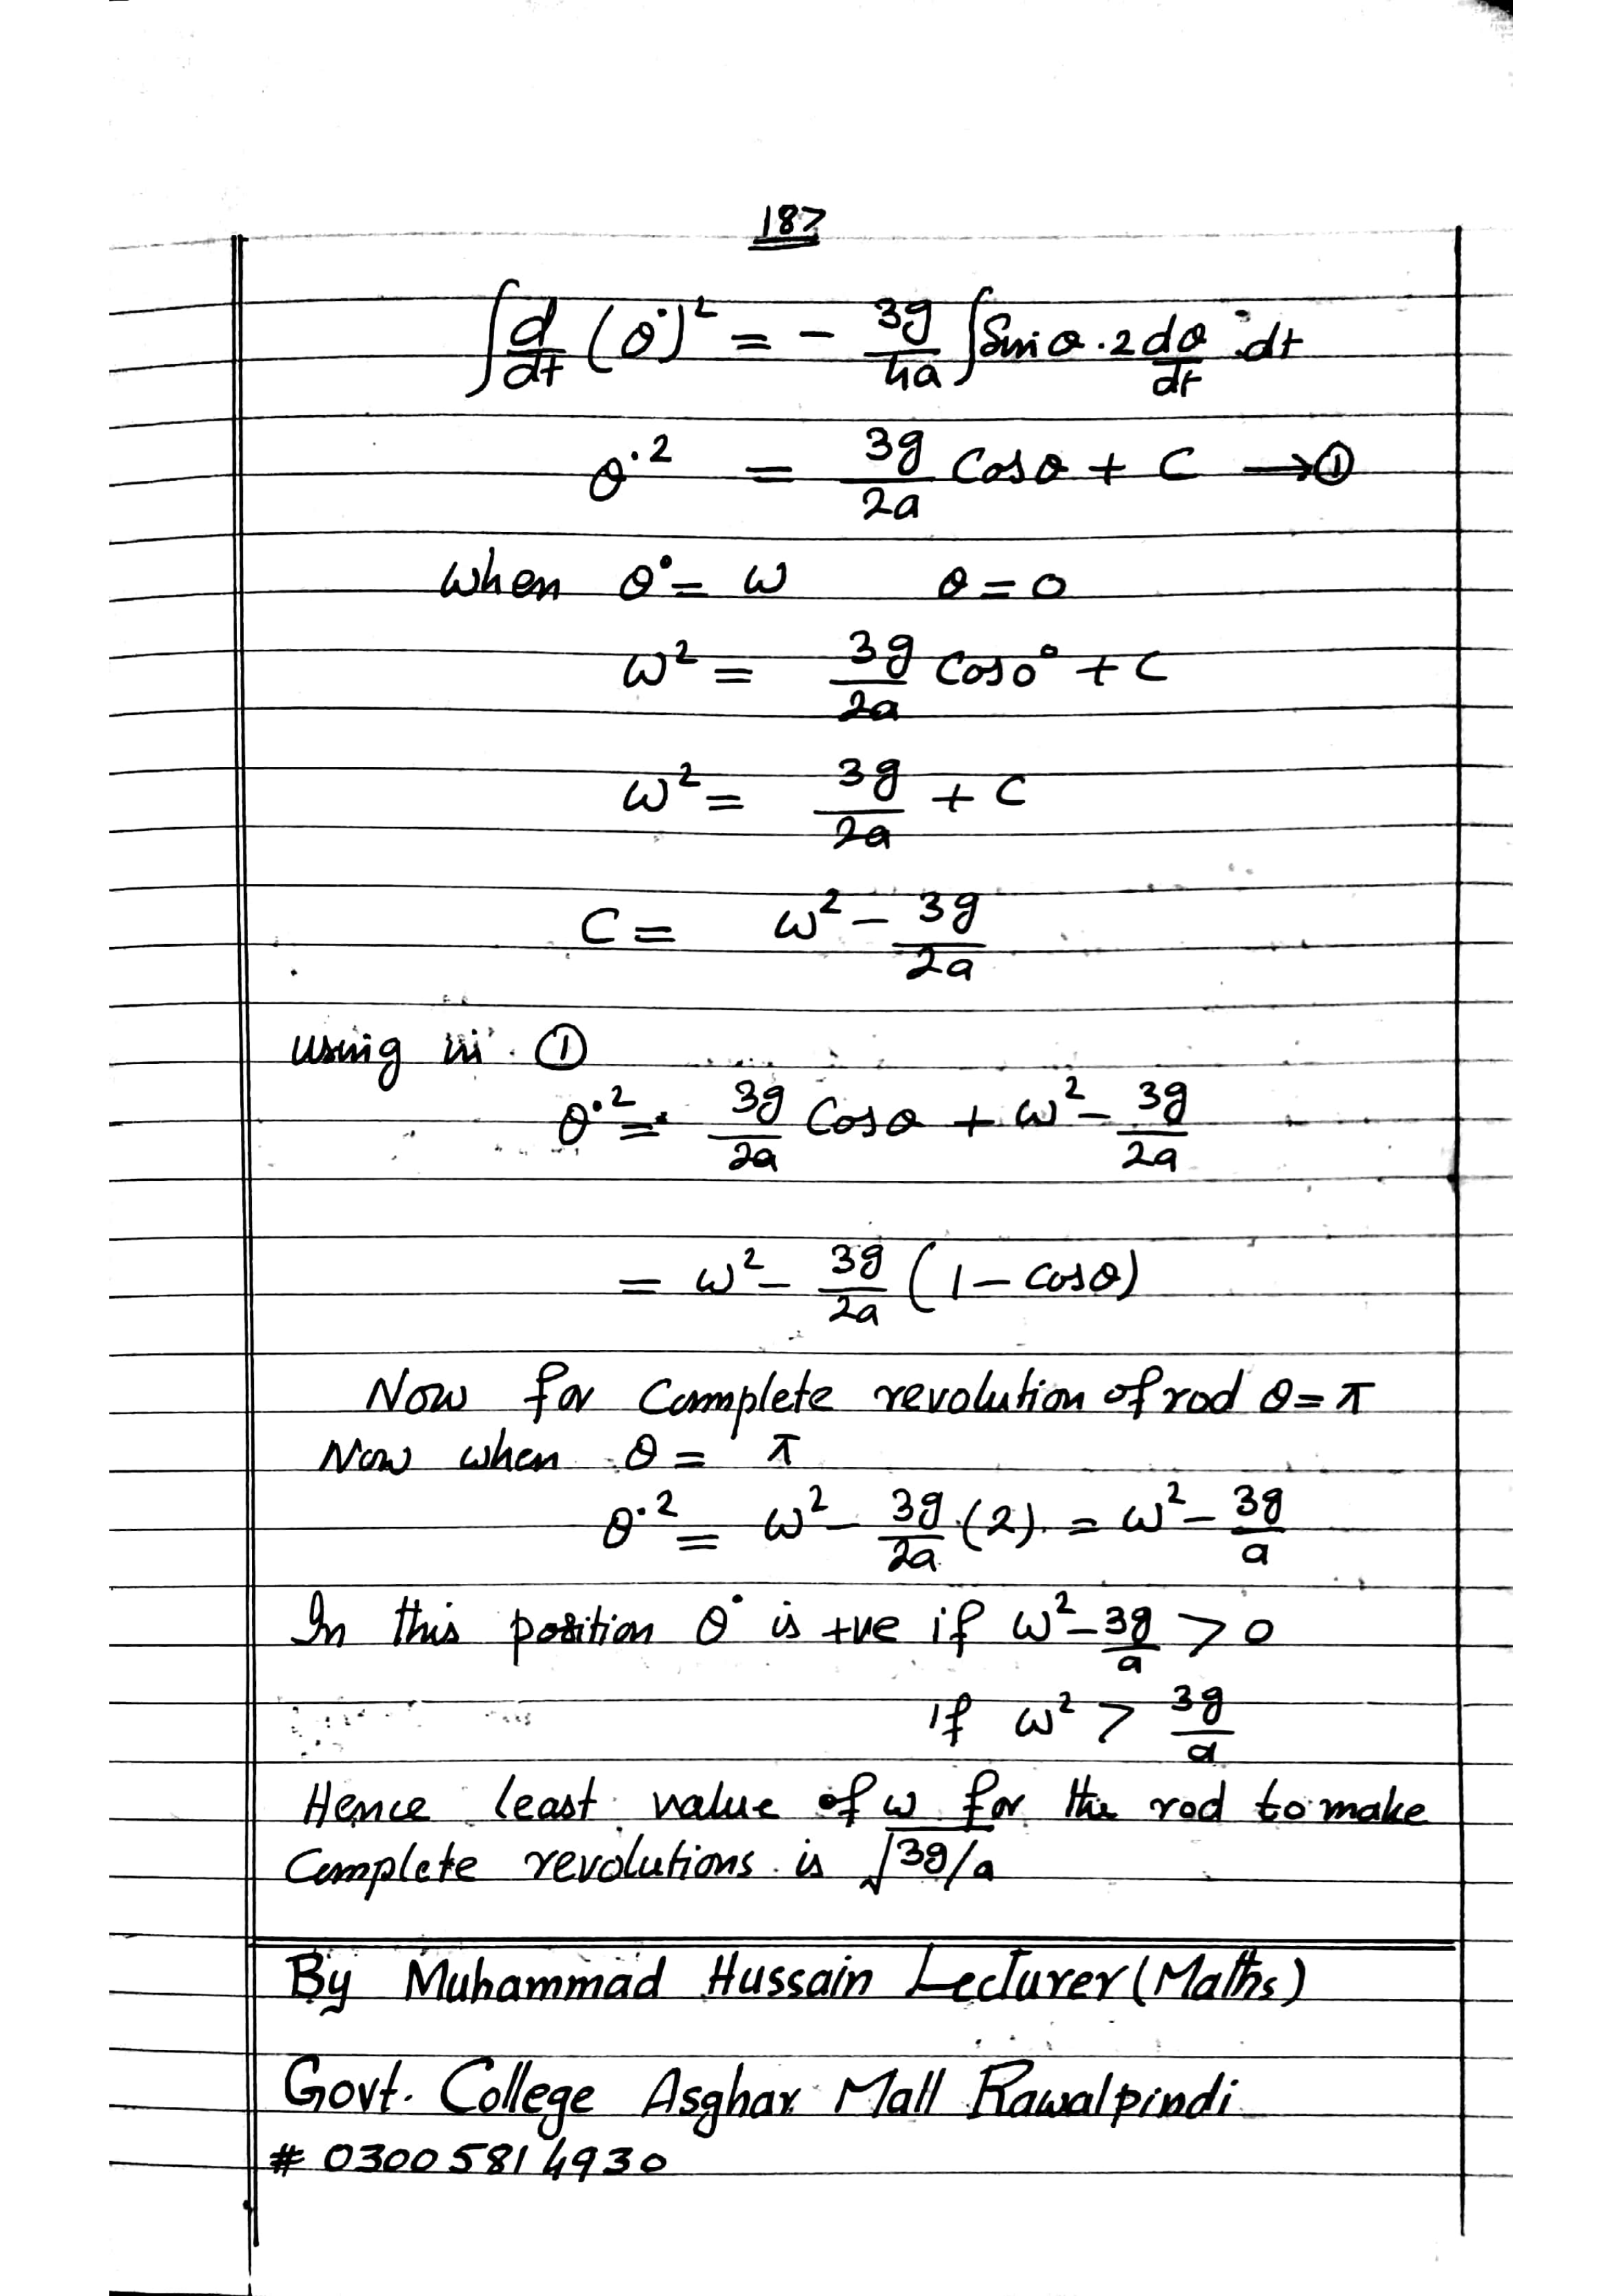 187
∫ d/dt (θ̇)² = - 3g/4a ∫ Sin θ . 2 dθ/dt . dt
θ̇² = 3g/2a Cos θ + C → ①
When θ̇ = ω θ = 0
ω² = 3g/2a Cos 0° + C
ω² = 3g/2a + C
C = ω² - 3g/2a
using in ①
θ̇² = 3g/2a Cos θ + ω² - 3g/2a
= ω² - 3g/2a (1 - cos θ)
Now for Complete revolution of rod θ = π
Now when θ = π
θ̇² = ω² - 3g/2a (2) = ω² - 3g/a
In this position θ̇ is +ve if ω² - 3g/a > 0
if ω² > 3g/a
Hence least value of ω for the rod to make
Complete revolutions is √3g/a
By Muhammad Hussain Lecturer (Maths)
Govt. College Asghar Mall Rawalpindi
# 0300 5814930